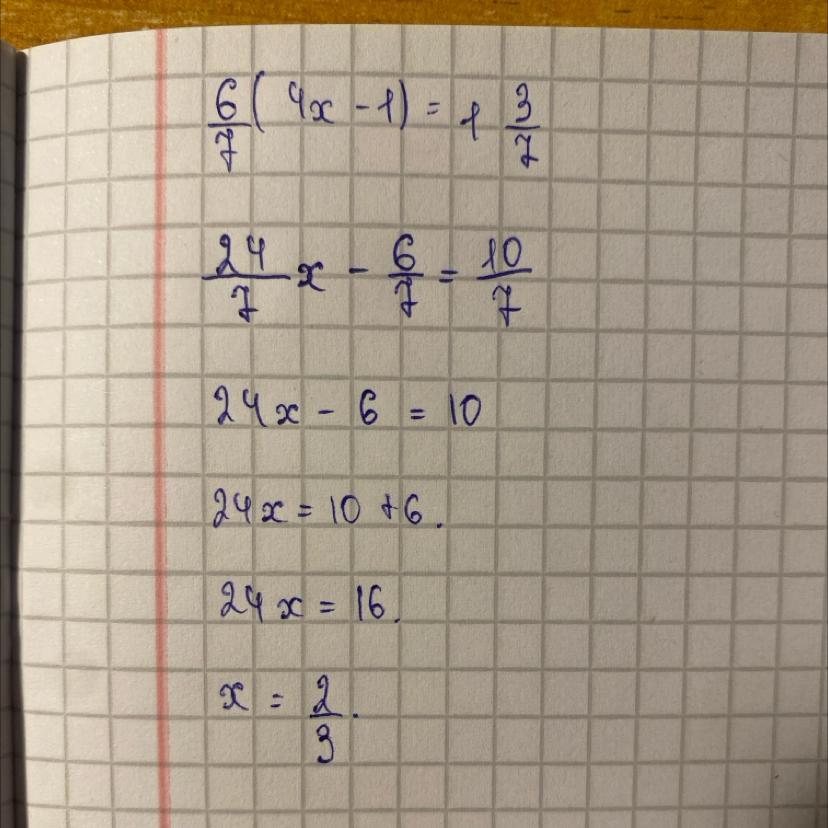 6/7 ( 4x - 1) = 1 3/7
24/7 x - 6/7 = 10/7
24x - 6 = 10
24x = 10 + 6.
24x = 16.
x = 2/3.